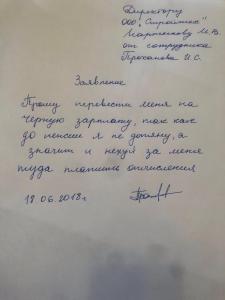 Директору
ООО "Стройтех"
Мартынову М.В.
от сотрудника
Проханова И.С.
Заявление
Прошу перевести меня на
черную зарплату, так как
до пенсии я не дотяну, а
значит и нехуй за меня
туда платить отчисления
18.06.2018г.